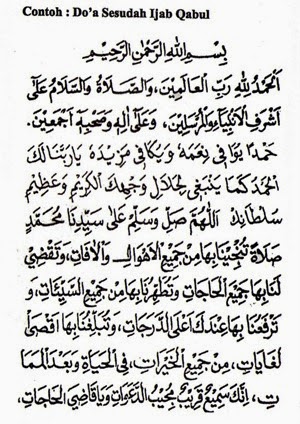 Contoh : Do'a Sesudah Ijab Qabul
بِسْمِ اللهِ الرَّحْمٰنِ الرَّحِيْمِ
اَلْحَمْدُ لِلّٰهِ رَبِّ الْعَالَمِيْنَ، وَالصَّلَاةُ وَالسَّلَامُ عَلَى
اَشْرَفِ الْاَنْبِيَاءِ وَالْمُرْسَلِيْنَ، وَعَلَى اٰلِهِ وَصَحْبِهِ اَجْمَعِيْنَ.
حَمْدًا يُوَافِى نِعَمَهُ وَيُكَافِى مَزِيْدَهُ يَارَبَّنَالَكَ
الْحَمْدُ كَمَا يَنْبَغِى لِجَلَالِ وَجْهِكَ الْكَرِيْمِ وَعَظِيْمِ
سُلْطَانِكَ اَللّٰهُمَّ صَلِّ وَسَلِّمْ عَلَى سَيِّدِنَا مُحَمَّدٍ
صَلَاةً تُنْجِيْنَابِهَا مِنْ جَمِيْعِ الْاَهْوَالِ وَالْاٰفَاتِ، وَتَقْضِيْ
لَنَابِهَا جَمِيْعَ الْحَاجَاتِ وَتُطَهِّرُنَابِهَا مِنْ جَمِيْعِ السَّيِّئَاتِ، وَ
تَرْفَعُنَا بِهَا عِنْدَكَ اَعْلَى الدَّرَجَاتِ، وَتُبَلِّغُنَابِهَا اَقْصَى
لغَايَاتِ، مِنْ جَمِيْعِ الْخَيْرَاتِ، فِى الْحَيَاةِ وَبَعْدَ الْمَمَا
تِ، اِنَّكَ سَمِيْعٌ قَرِيْبٌ مُجِيْبُ الدَّعَوَاتِ وَيَاقَاضِيَ الْحَاجَاتِ،